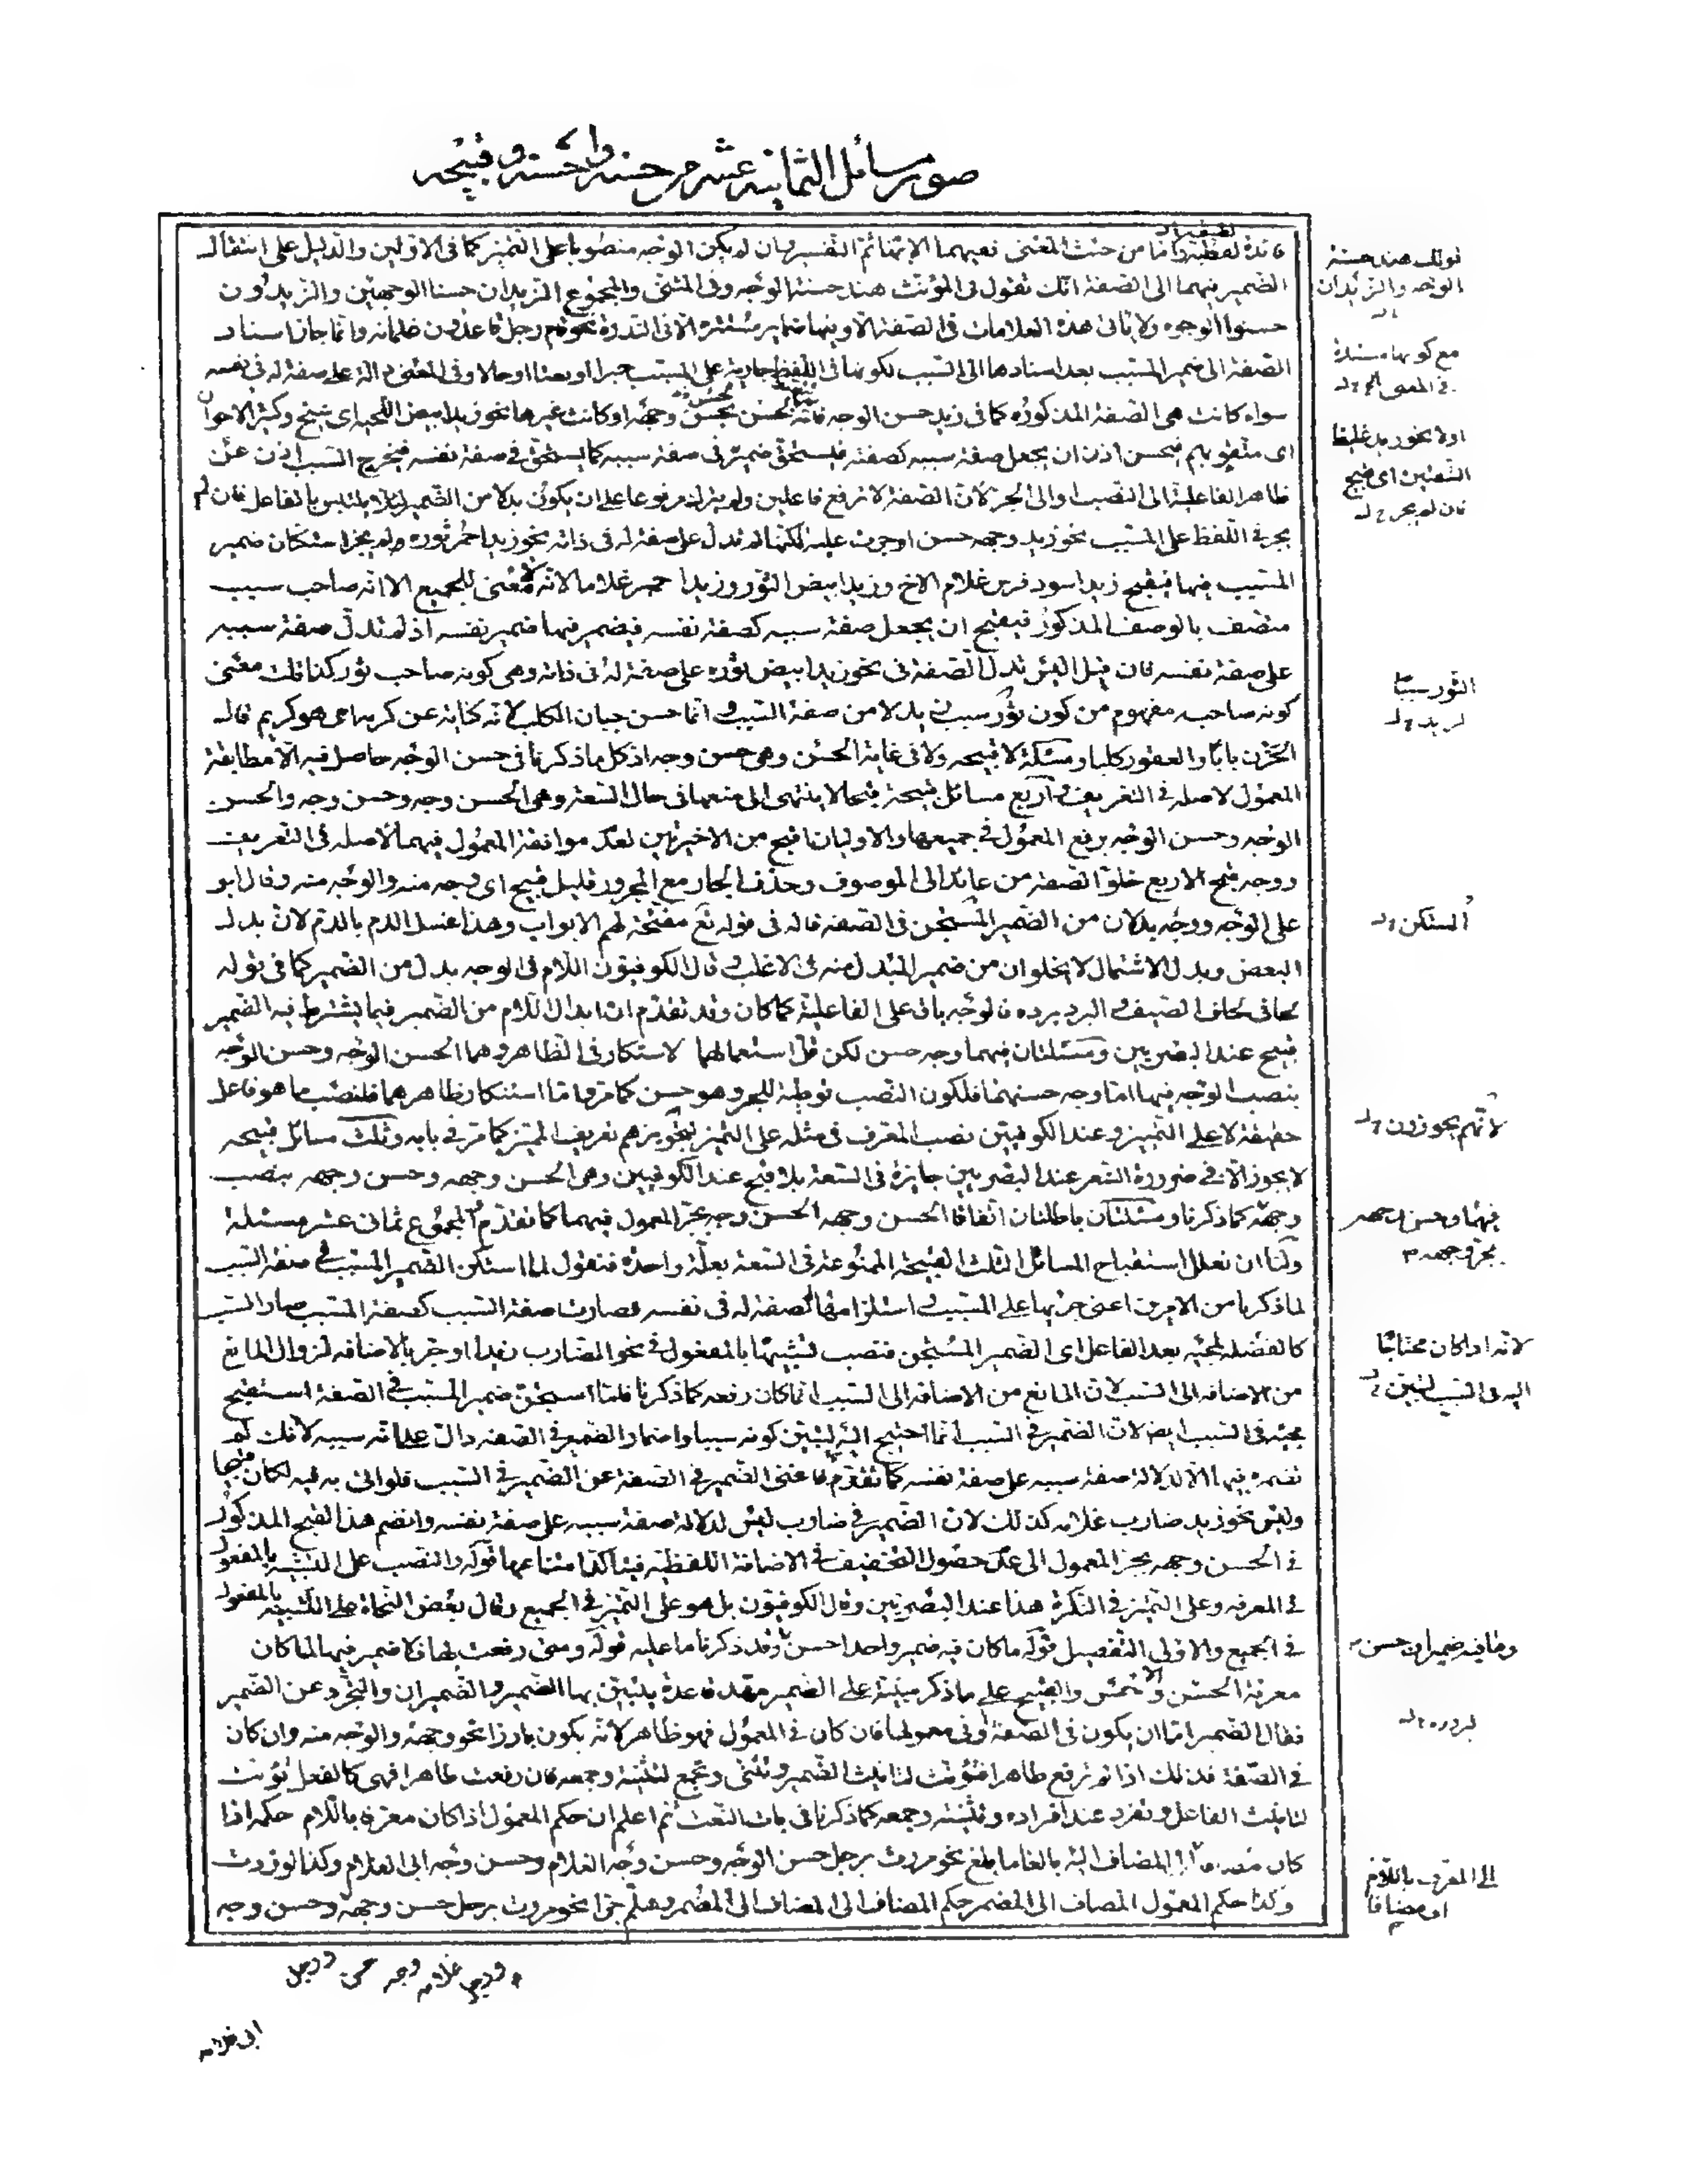 صور مسائل الثمانية عشر من حسنه واحسنه وقبيحه
فائدة لفظية واما من حيث المعنى ففيهما الابهام ثم التفسير وان لم يكن الوجه منصوبا على التمييز كما فى الاولين والدليل على انتقال
الضمير فيهما الى الصفة انك تقول فى المؤنث هند حسنة الوجه وفى المثنى والمجموع الزيدان حسنا الوجهين والزيدون
حسنوا الوجوه ولا تاتى هذه العلامات فى الصفة الا وفيها ضمائر مستترة الا فى الندرة نحو قام رجل قاعدون غلمانه وانما جاز اسناد
الصفة الى ضمير المسبب بعد اسنادها الى السبب لكونها فى اللفظ جارية على المسبب خبرا او نعتا او حالا وفى المعنى دالة على صفة له فى نفسه
سواء كانت هى الصفة المذكورة كما فى زيد حسن الوجه فانه حسن بحسن وجهه او كانت غيرها نحو زيد ابيض اللحية اى شيخ وكثير الاخوان
اى متقو بهم فحسن اذن ان يجعل صفة سببه كصفة نفسه فيستحق ضميره فى صفة سببه كما يستحق فى صفة نفسه فيخرج السبب اذن عن
ظاهر الفاعلية الى النصب او الى الجر لان الصفة لا ترفع فاعلين ولم يترك مرفوعا على ان يكون بدلا من الضمير لئلا يلتبس بالفاعل فان لم
يجر فى اللفظ على المسبب نحو زيد وجهه حسن او جرت عليه لكنها لم تدل على صفة له فى ذاته نحو زيد احمر ثوره ولم يجز استكان ضمير
المسبب فيها فيقبح زيد اسود فرس غلام الاخ وزيد ابيض الثور وزيد احمر غلاما لانه لا معنى للجميع الا انه صاحب سبب
متصف بالوصف المذكور فيقبح ان يجعل صفة سببه كصفة نفسه فيضمر فيها ضمير نفسه اذ لم تدل صفة سببه
على صفة نفسه فان قيل اليس تدل الصفة فى نحو زيد ابيض ثوره على صفة له فى ذاته وهى كونه صاحب ثور كذا قلت معنى
كونه صاحبه مفهوم من كون ثور سببا لزيد لا من صفة السبب وانما حسن جبان الكلب لانه كناية عن كريم اى هو كريم قال
الحزن بابا والعقور كلبا ومسئلة لا قبيحة ولا فى غاية الحسن وهى حسن وجه اذ كل ما ذكرنا فى حسن الوجه حاصل فيه الا مطابقة
المعمول لاصله فى التعريف واربع مسائل قبيحة قبحا لا ينتهى الى منعها فى حال السعة وهى الحسن وجه وحسن وجه والحسن
الوجه وحسن الوجه برفع المعمول فى جميعها والاوليان اقبح من الاخيرتين لعدم موافقة المعمول فيهما لاصله فى التعريف
ووجه قبح الاربع خلو الصفة من عائد الى الموصوف وحذف الجار مع المجرور قليل قبيح اى وجه منه والوجه منه وقال ابو
على الوجه ووجه بدلان من الضمير المستكن فى الصفة قاله فى قوله تع مفتحة لهم الابواب وهذا غسل الدم بالدم لان بدل
البعض وبدل الاشتمال لا يخلوان من ضمير المبدل منه فى الاغلب وقال الكوفيون اللام فى الوجه بدل من الضمير كما فى قوله
لحافى لحاف الضيف والبرد برده فالوجه باق على الفاعلية كما كان وقد تقدم ان ابدال اللام من الضمير فيما يشترط فيه الضمير
قبيح عند البصريين ومسئلتان فيهما وجه حسن لكن قل استعمالهما لاستنكار فى الظاهر وهما الحسن الوجه وحسن الوجه
بنصب الوجه فيهما اما وجه حسنهما فلكون النصب توطئة للجر وهو حسن كما مر واما استنكار ظاهرهما فلنصب ما هو فاعل
حقيقة لا على التمييز وعند الكوفيين نصب المعرف فى مثله على التمييز لتجويزهم تعريف المميز كما مر فى بابه وثلث مسائل قبيحه
لا يجوز الا فى ضرورة الشعر عند البصريين جايزة فى السعة بلا قبح عند الكوفيين وهى الحسن وجهه وحسن وجهه بنصب
وجهه كما ذكرنا ومسئلتان باطلتان اتفاقا الحسن وجهه الحسن وجه بجر المعمول فيهما كما تقدم المجموع ثمانى عشر مسئلة
ولنا ان نعلل استقباح المسائل الثلث القبيحة الممنوعة فى السعة بعلة واحدة فنقول لما استكن الضمير المسبب فى صفة السبب
لما ذكرنا من الامرين اعنى جريها على المسبب واستلزامها لصفة له فى نفسه فصارت صفة السبب كصفة المسبب صار السبب
كالفضلة لمجيئه بعد الفاعل اى الضمير المستكن فنصب تشبيها بالمفعول فى نحو الضارب زيدا او جر بالاضافه لزوال المانع
من الاضافه الى السبب لان المانع من الاضافه الى السبب انما كان رفعه كما ذكرنا فلما استكن ضمير المسبب فى الصفة استقبح
مجيئه فى السبب ايضا لان الضمير فى السبب انما احتيج اليه ليتبين كونه سببا واضمار الضمير فى الصفه دال على انه سببه لانك لم
تضمره فيها الا لدلالة صفة سببه على صفة نفسه كما تقدم فاغنى الضمير فى الصفة عن الضمير فى السبب فلو اتى به فيه لكان قبيحا
وليس نحو زيد ضارب غلامه كذلك لان الضمير فى ضارب ليس لدلالة صفة سببه على صفة نفسه وانضم هذا القبح المذكور
فى الحسن وجهه بجر المعمول الى عدم حصول التخفيف فى الاضافة اللفظية فتاكد امتناعها قوله والنصب على التشبيه بالمفعول
فى المعرفه وعلى التمييز فى النكرة هذا عند البصريين وقال الكوفيون بل هو على التمييز فى الجميع وقال بعض النحاة على التشبيه بالمفعول
فى الجميع والاولى التفصيل قوله ما كان فيه ضمير واحد احسن وقد ذكرنا ما عليه قوله ومتى رفعت بها فلا ضمير فيها لما كان
معرفة الحسن والاحسن والقبيح على ما ذكر مبنية على الضمير مهد قاعدة يتبين بها الضمير والضميران والتجرد عن الضمير
فقال الضمير اما ان يكون فى الصفة او فى معمولها فان كان فى المعمول فهو ظاهر لانه يكون بارزا نحو وجهه والوجه منه وان كان
فى الصفة فذلك اذا لم ترفع ظاهرا فتؤنث لتانيث الضمير وتثنى وتجمع لتثنيته وجمعه فان رفعت ظاهرا فهى كالفعل تؤنث
لتانيث الفاعل وتفرد عند افراده وتثنيته وجمعه كما ذكرنا فى باب النعت ثم اعلم ان حكم المعمول اذا كان معرفا باللام حكمه اذا
كان مضافا الى المضاف اليه بالغا ما بلغ نحو مررت برجل حسن الوجه وحسن وجه الغلام وحسن وجه ابى الغلام وكذا لو زدت
وكذا حكم المعمول المضاف الى المضمر حكم المضاف الى المضاف الى المضمر وهلم جرا نحو مررت برجل حسن وجهه وحسن وجه
قولك هند حسنة
الوجه والزيدان
مع كونها مسندة
فى المعنى
الثور سببا
لزيد
المستكن
لانهم يجوزون
فيهما وحسن وجهه
بجر وجهه
لانه اذا كان محتاجا
اليه فى السبب ليتبين
وما فيه ضميران حسن
الى المعرف باللام
او مضافا
ابى غلامه